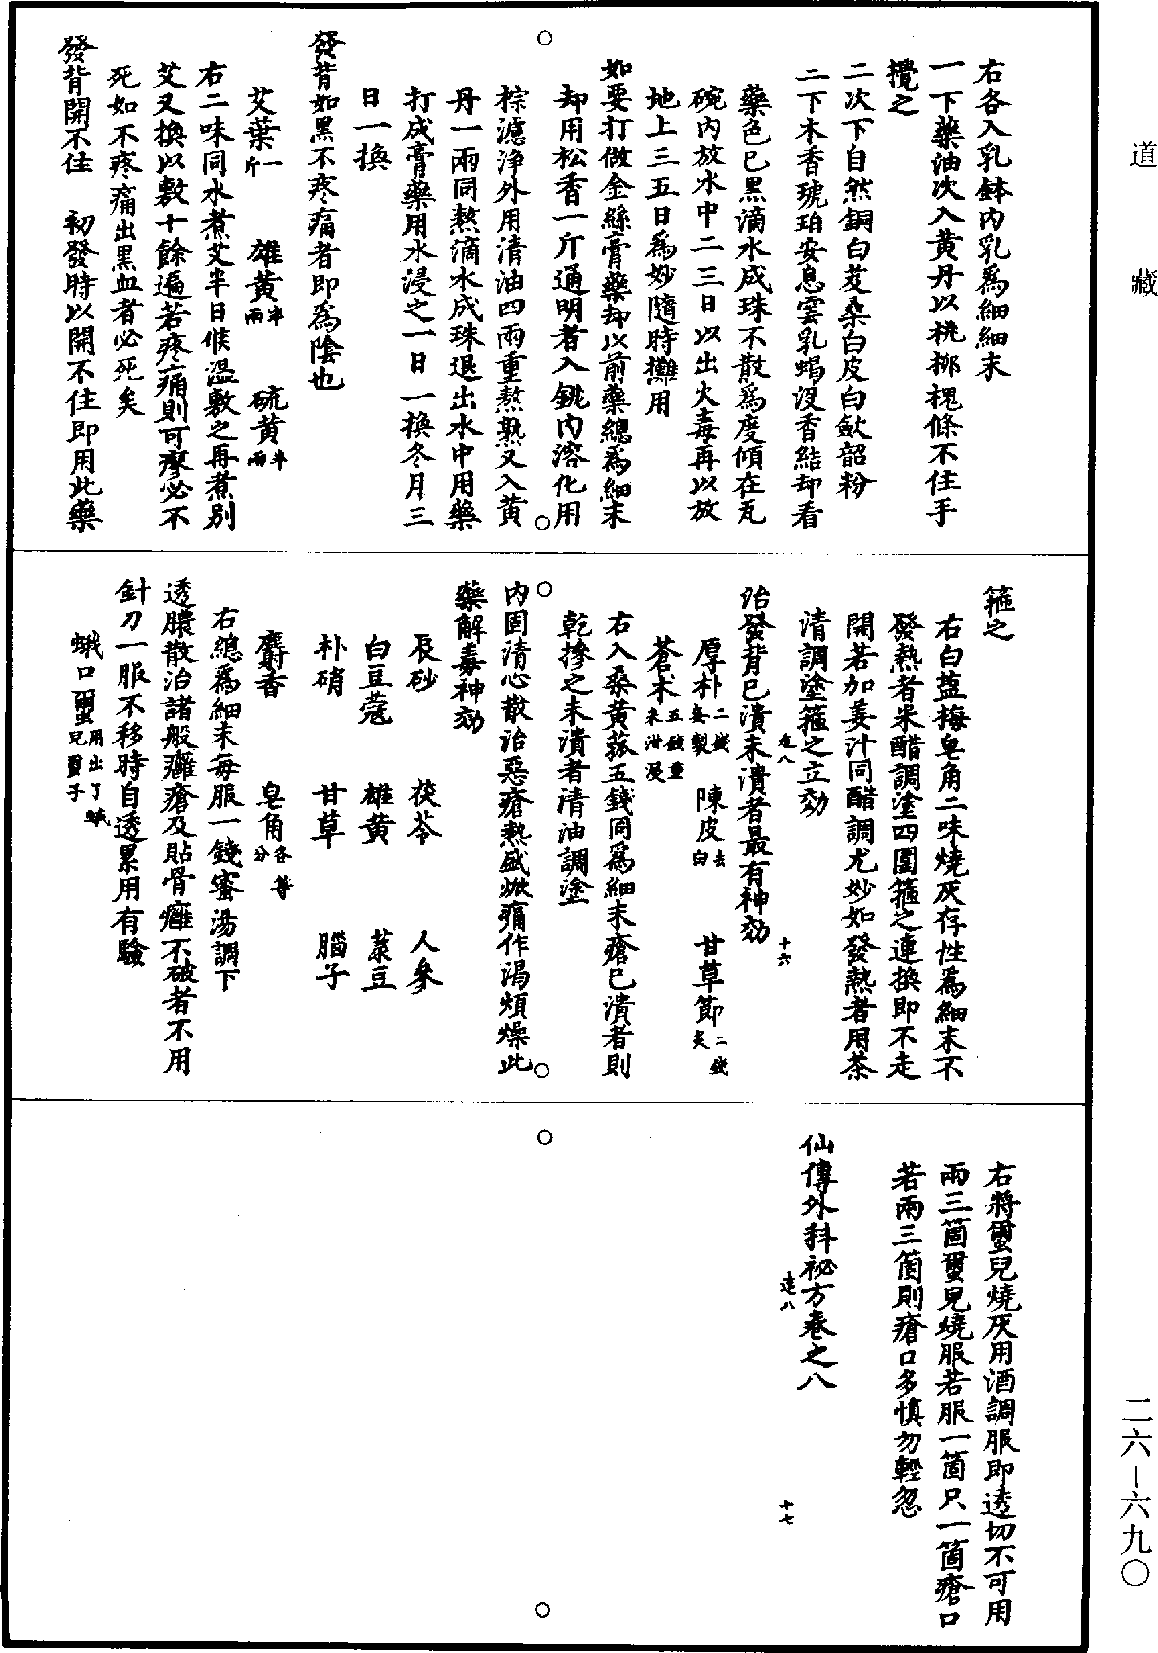 道藏
右各入乳鉢內乳為細細末
一下藥油次入黃丹以桃柳槐條不住手
攪之
二次下自然銅白芨桑白皮白歛韶粉
二下木香琥珀安息雲乳蝎沒香結却看
藥色已黑滴水成珠不散為度傾在瓦
碗內放水中二三日以出火毒再以放
地上三五日為妙隨時攤用
如要打做金絲膏藥却以前藥總為細末
却用松香一斤通明者入銚內溶化用
棕濾淨外用清油四兩重熬熟又入黃
丹一兩同熬滴水成珠退出水中用藥
打成膏藥用水浸之一日一換冬月三
日一換
發背如黑不疼痛者即為陰也
艾葉一斤 雄黃半兩 硫黃半兩
右二味同水煮艾半日候溫敷之再煮別
艾又換以敷十餘遍若疼痛則可瘳必不
死如不疼痛出黑血者必死矣
發背開不住 初發時以開不住即用此藥
箍之
右白鹽梅皂角二味燒灰存性為細末不
發熱者米醋調塗四圍箍之連換即不走
開若加薑汁同醋調尤妙如發熱者用茶
清調塗箍之立効
卷八 十六
治發背已潰未潰者最有神効
厚朴二錢姜製 陳皮去白 甘草節二錢炙
蒼术五錢重米泔浸
右入桑黃菰五錢同為細末瘡已潰者則
乾摻之未潰者清油調塗
內固清心散治惡瘡熱盛焮痛作渴煩燥此
藥解毒神効
辰砂 茯苓 人參
白豆蔻 雄黃 菉豆
朴硝 甘草 腦子
麝香 皂角各等分
右總為細末每服一錢蜜湯調下
透膿散治諸般癰瘡及貼骨癰不破者不用
針刀一服不移時自透累用有驗
蛾口蠒用出了蛾兒蠒子
右將蠒兒燒灰用酒調服即透切不可用
兩三箇蠒兒燒服若服一箇只一箇瘡口
若兩三箇則瘡口多慎勿輕忽
仙傳外科祕方卷之八
卷八 十七
二六—六九〇